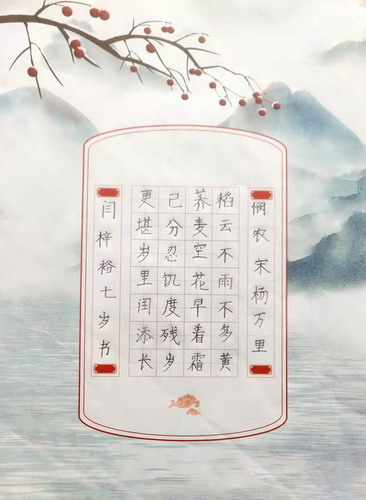 悯农 宋 杨万里
稻云不雨不多黄
荞麦空花早着霜
已分忍饥度残岁
更堪岁里闰添长
闫梓裕七岁书